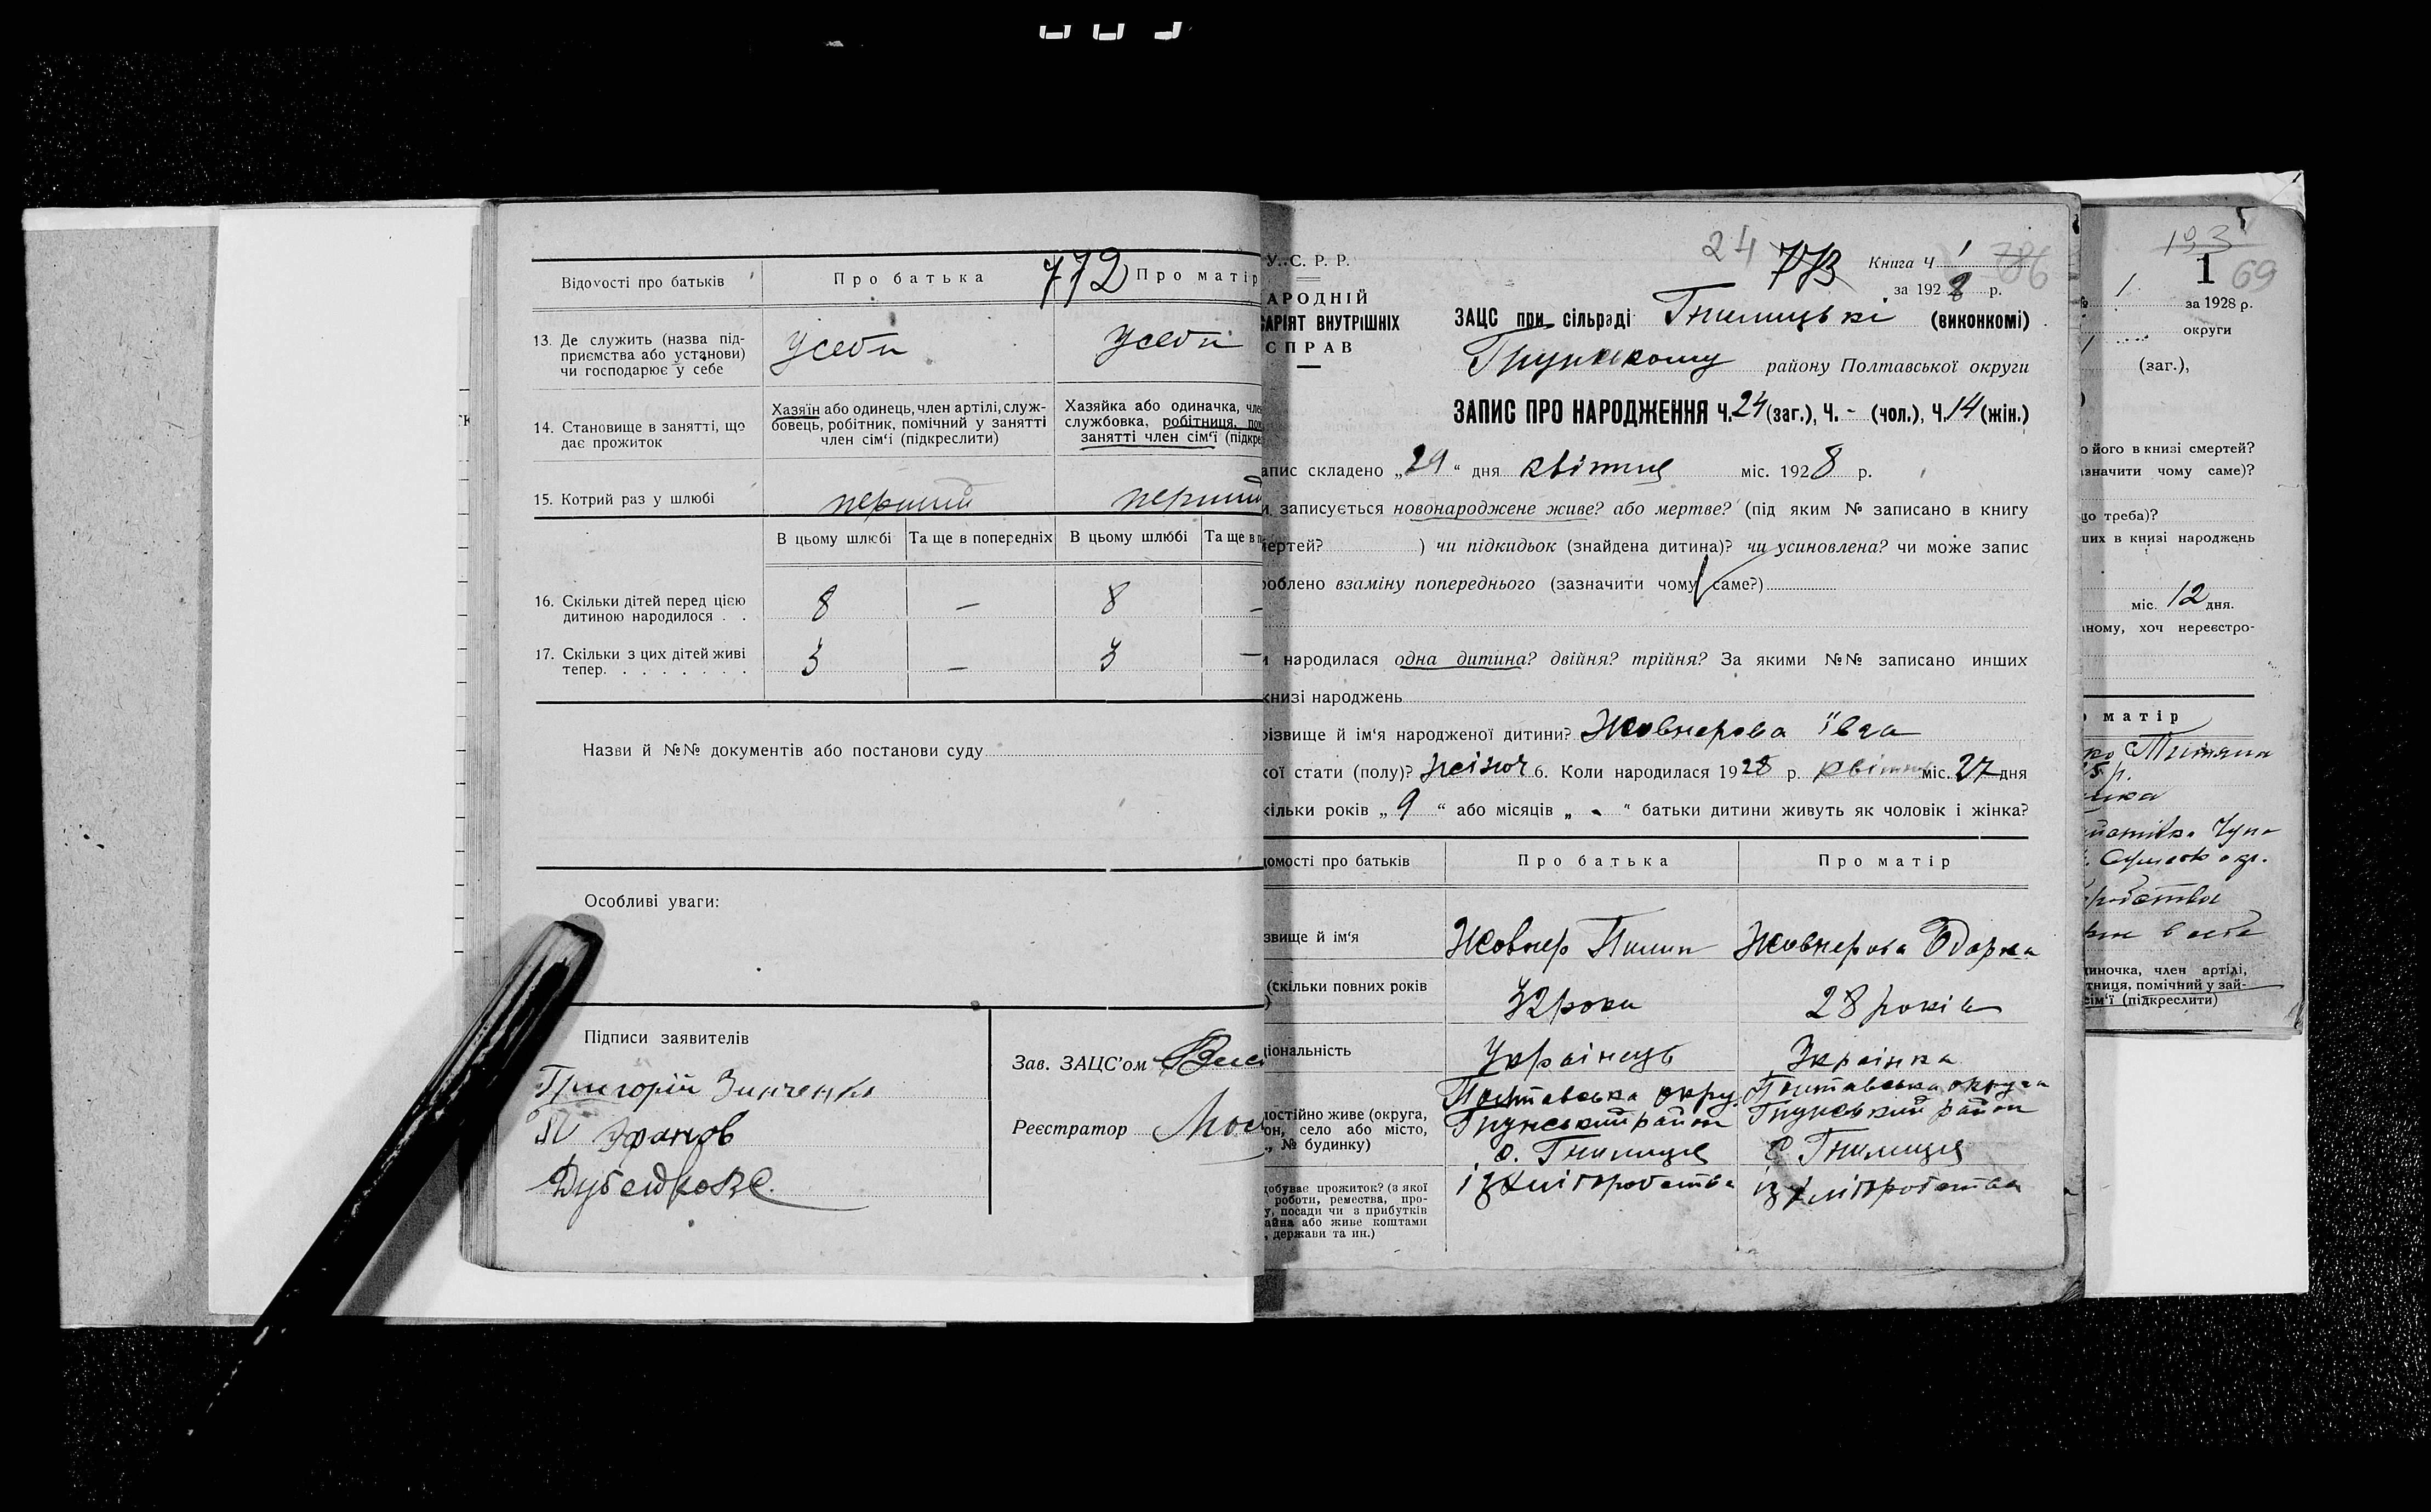 772
Відомості про батьків
Про батька
Про матір
13. Де служить (назва під-
приємства або установи)
чи господарює у себе
Усеби
Усеби
14. Становище в занятті, що
дає прожиток
Хазяїн або одинець, член артілі, служ-
бовець, робітник, помічний у занятті
член сім'ї (підкреслити)
Хазяйка або одиначка, чле
службовка, робітниця, по
занятті член сім'ї (підкре
15. Котрий раз у шлюбі
перший
перший
В цьому шлюбі
Та ще в попередніх
В цьому шлюбі
Та ще в п
16. Скільки дітей перед цією
дитиною народилося . .
8 — 8 —
17. Скільки з цих дітей живі
тепер. . . . . . . .
3 — 3 —
Назви й №№ документів або постанови суду
Особливі уваги:
Підписи заявителів
Григорій Зинченко
Зав. ЗАЦС'ом
Реєстратор
У. С. Р. Р.
АРОДНІЙ
САРІЯТ ВНУТРІШНІХ
СПРАВ
24 773
Книга Ч 1 786
за 1928 р.
ЗАЦС при сільраді Гнилицькі (виконкомі)
Грунському району Полтавської округи
ЗАПИС ПРО НАРОДЖЕННЯ Ч. 24 (заг.), Ч. - (чол.), Ч. 14 (жін.)
апис складено „29“ дня квітня міс. 1928 р.
и записується новонароджене живе? або мертве? (під яким № записано в книгу
мертей? ) чи підкидьок (знайдена дитина)? чи усиновлена? чи може запис
роблено взаміну попереднього (зазначити чому саме?)
и народилася одна дитина? двійня? трійня? За якими №№ записано инших
книзі народжень
різвище й ім'я народженої дитини? Жовнерова Ївга
кої стати (полу)? жіноч 6. Коли народилася 1928 р. квітня міс. 27 дня
кільки років „9“ або місяців „-“ батьки дитини живуть як чоловік і жінка?
домості про батьків
Про батька
Про матір
звище й ім'я
Жовнер Пилип
Жовнерова Одарка
(скільки повних років
32 роки
28 років
ціональність
Українець
Українка
достійно живе (округа,
он, село або місто,
., № будинку)
Полтавська округ
Грунський район
с. Гнилиця
Полтавська округа
Грунський район
с Гнилиця
добуває прожиток? (з якої
роботи, ремества, про-
у, посади чи з прибутків
айна або живе коштами
, держави та ин.)
із хліборобства
із хліборобства
193
1 69
1 за 1928 р.
округи
(заг.),
о його в книзі смертей?
значити чому саме)?
що треба)?
ших в книзі народжень
міс. 12 дня.
ному, хоч нереєстро-
матір
Титяна
5 р.
нка
Сумськ окр.
диночка, член артілі,
тниця, помічний у зай-
сім'ї (підкреслити)